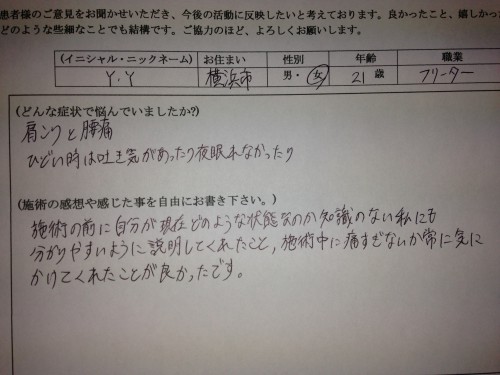 患者様のご意見をお聞かせいただき、今後の活動に反映したいと考えております。良かったこと、嬉しかっ
どのような些細なことでも結構です。ご協力のほど、よろしくお願いします。
(イニシャル・ニックネーム) お住まい 性別 年齢 職業
Y.Y 横浜市 男・女 21歳 フリーター
(どんな症状で悩んでいましたか?)
肩こりと腰痛
ひどい時は吐き気があったり夜眠れなかったり
(施術の感想や感じた事を自由にお書き下さい。)
施術の前に自分が現在どのような状態なのか知識のない私にも
分かりやすいように説明してくれたこと，施術中に痛すぎないか常に気に
かけてくれたことが良かったです。